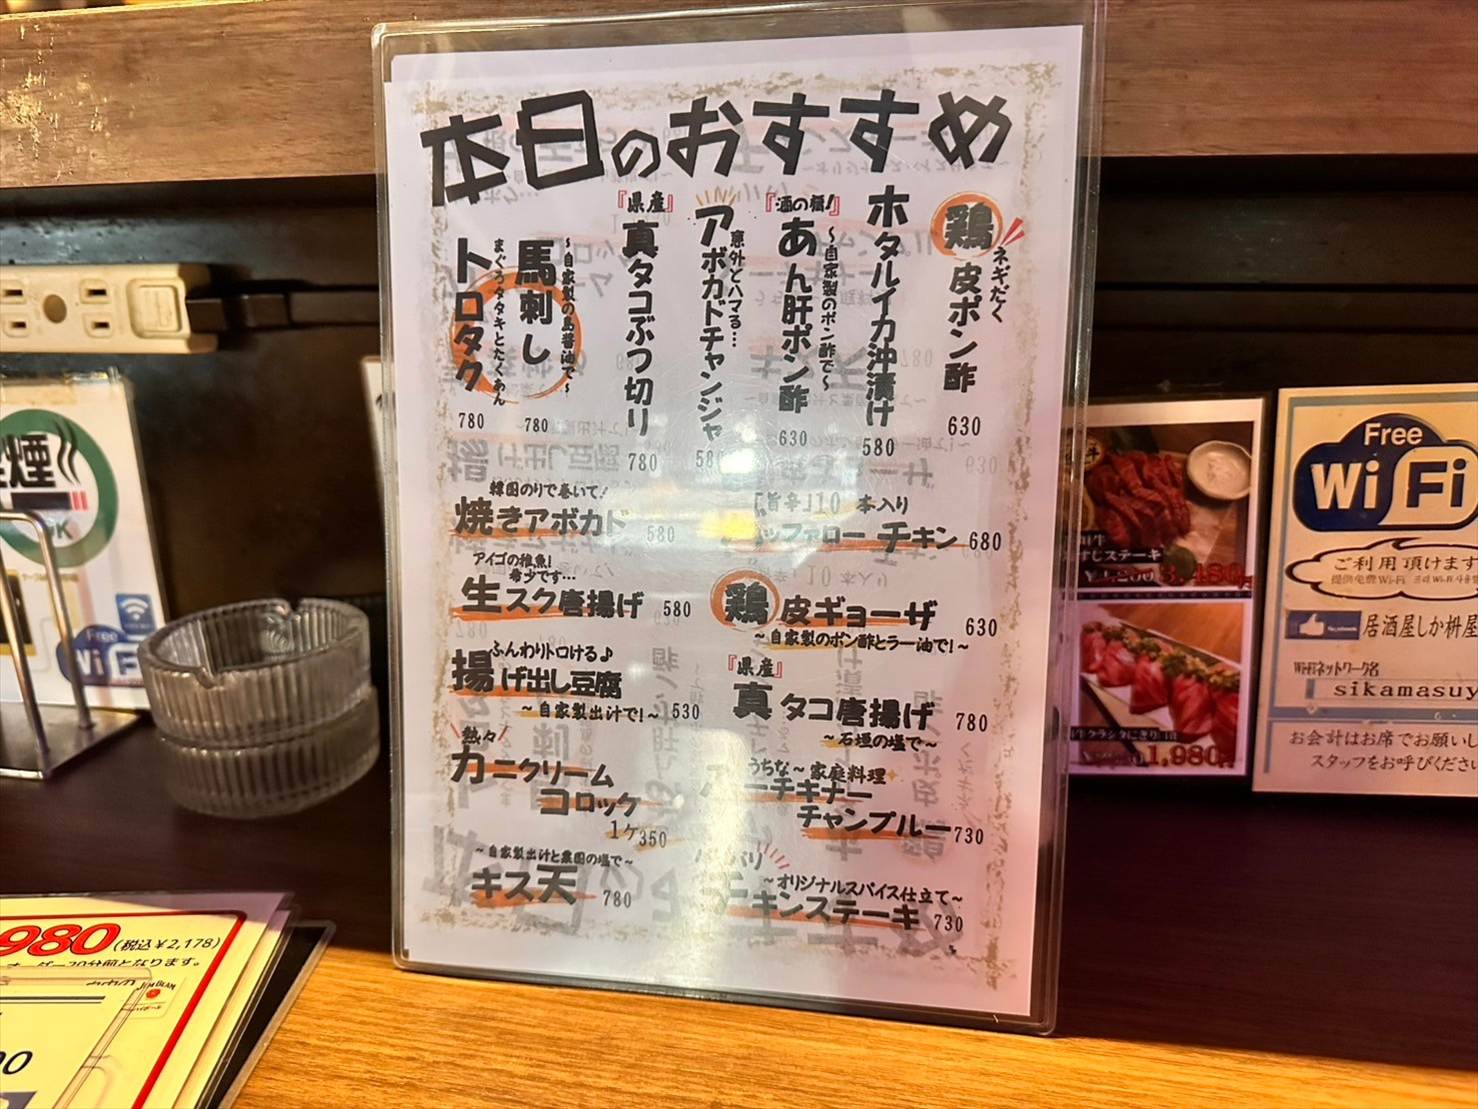 本日のおすすめ
鶏皮ポン酢
ネギだく
630
ホタルイカ沖漬け
580
『酒の福!』
あん肝ポン酢
～自家製のポン酢で～
630
アボカドチャンジャ
意外とハマる…
580
『県産』
真タコぶつ切り
780
馬刺し
～自家製の馬醤油で～
780
トロタク
まぐろタタキとたくあん
780
韓国のりで巻いて!
焼きアボカド 580
アイゴの稚魚!
希少です…
生スク唐揚げ 580
ふんわりトロける♪
揚げ出し豆腐
～自家製出汁で!～ 530
熱々
カニクリーム
コロッケ
1ケ350
～自家製出汁と粟国の塩で～
キス天 780
「旨辛」10本入り
バッファローチキン 680
鶏皮ギョーザ 630
～自家製のポン酢とラー油で!～
『県産』
真タコ唐揚げ 780
～石垣の塩で～
うちな～家庭料理
チキナー
チャンプルー730
パリパリ
～オリジナルスパイス仕立て～
チキンステーキ 730
煙
OK
Free
Wi Fi
980(税込¥2,178)
となります。
JIM BEAM
すじステーキ
1,480円
1,980円
Free
Wi Fi
ご利用頂けます
提供免費Wi-Fi
居酒屋しか枡屋
Wi-Fiネットワーク名
sikamasuy
お会計はお席でお願いし
スタッフをお呼びくださ